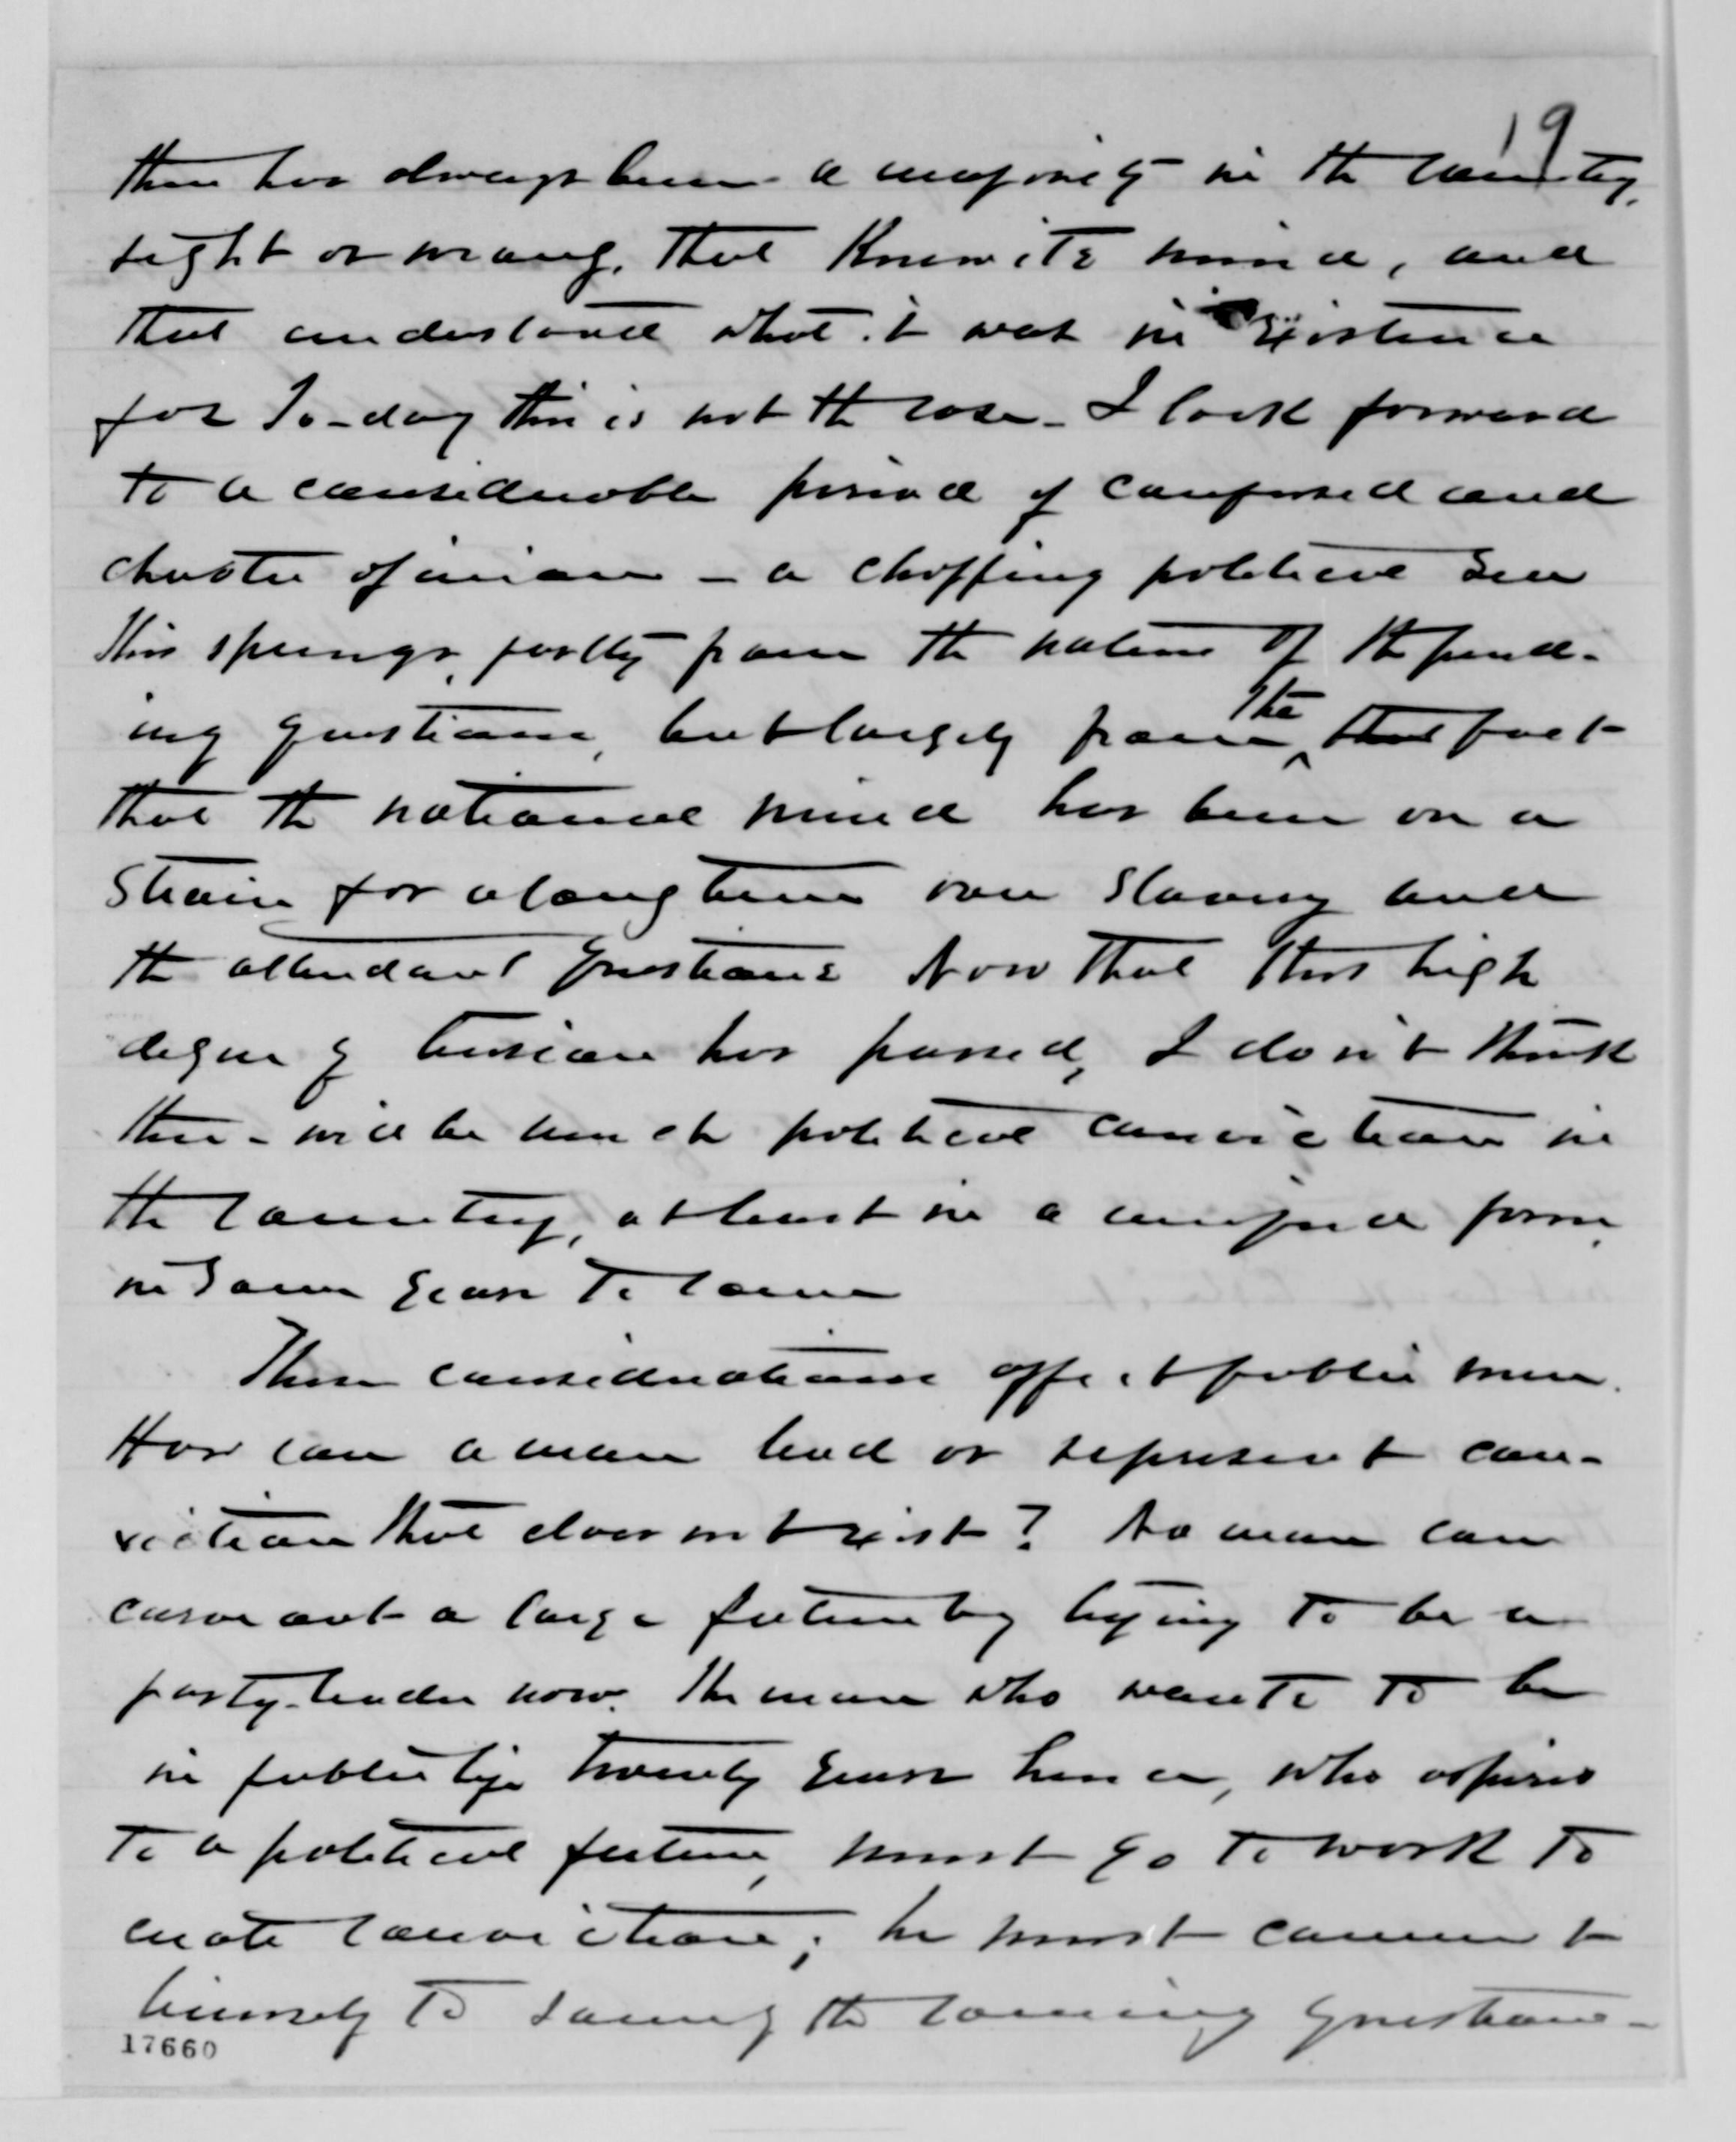 19
there has always been a majority in the country,
right or wrong, that knew its mind, and
that understood what it was in existence
for To-day this is not the case - I look forward
to a considerable period of confused and
chaotic opinion - a chopping political sea
This springs, partly from the nature of the pend-
ing questions, but largely from the that fact
that the national mind has been on a
strain for a long time over slavery and
the attendant questions Now that this high
degree of tension has passed, I don't think
there - will be much political conviction in
the country, at least in a unified form,
in some years to come
These considerations affect public men.
How can a man lead or represent con-
viction that does not exist? No man can
carve out a large future by trying to be a
party-leader now. The man who wants to be
in public life twenty years hence, who aspires
to a political future, must go to work to
create conviction; he must commit
himself to some of the coming questions -
17660